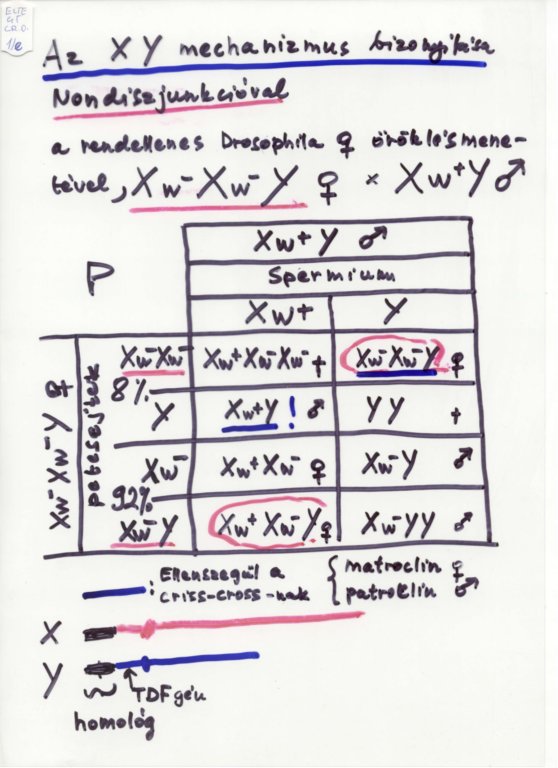 ELTE
GT
CR.O.
1/e
Az XY mechanizmus bizonyítása
Nondiszjunkcióval
a rendellenes Drosophila ♀ öröklésmene-
tével, Xw⁻Xw⁻Y ♀ × Xw⁺Y ♂
Xw+Y ♂
P
Spermium
Xw+ Y
Xw⁻Xw⁻Y ♀
petesejtek
Xw⁻Xw⁻ Xw+Xw⁻Xw⁻ † Xw⁻Xw⁻Y ♀
8%
Y Xw+Y ! ♂ YY †
Xw⁻ Xw+Xw⁻ ♀ Xw⁻Y ♂
92%
Xw⁻Y Xw+Xw⁻Y ♀ Xw⁻YY ♂
: Ellenszegül a { matroclin ♀
criss-cross-nak patroklin ♂
X
Y
TDF gén
homológ